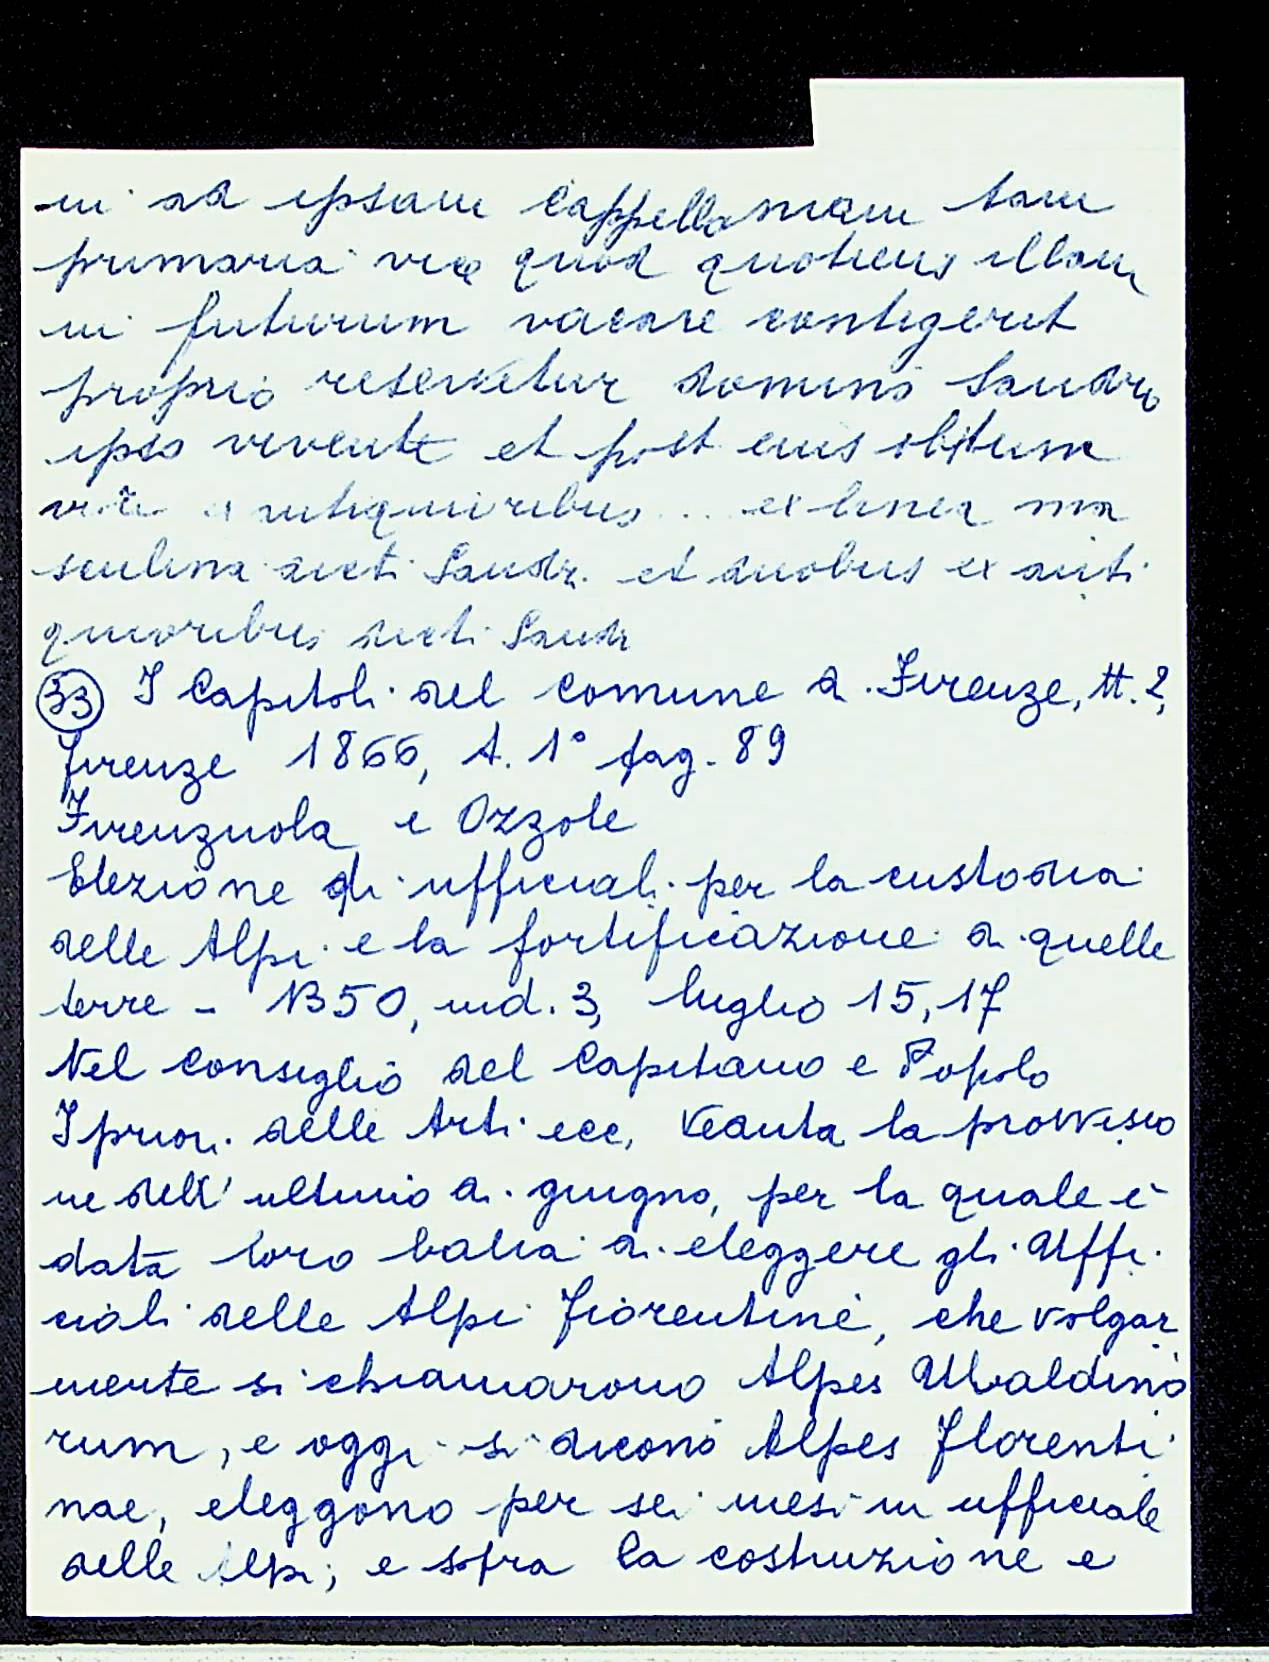 in ad ipsam Cappellaniam tam
primaria vice quod quotiens illam
in futurum vacare contigerit
proprio reservetur domino Sandro
ipso vivente et post eius obitum
antiquioribus... ex linea ma
sculina dicti Sandr. et duobus ex anti
quioribus dicti Sandr
(33) I Capitoli del comune di Firenze, tt. 2,
Firenze 1866, t. 1° pag. 89
Firenzuola e Ozzole
Elezione di ufficiali per la custodia
delle Alpi e la fortificazione di quelle
terre - 1350, ind. 3, luglio 15, 17
Nel Consiglio del Capitano e Popolo
I priori delle Arti ecc, Veduta la provvisio
ne dell' ultimo di giugno, per la quale è
data loro balia di eleggere gli Uffi
ciali delle Alpi fiorentine, che volgar
mente si chiamarono Alpes Ubaldino
rum, e oggi si dicono Alpes florenti
nae, eleggono per sei mesi in ufficiale
delle Alpi; e sopra la costruzione e